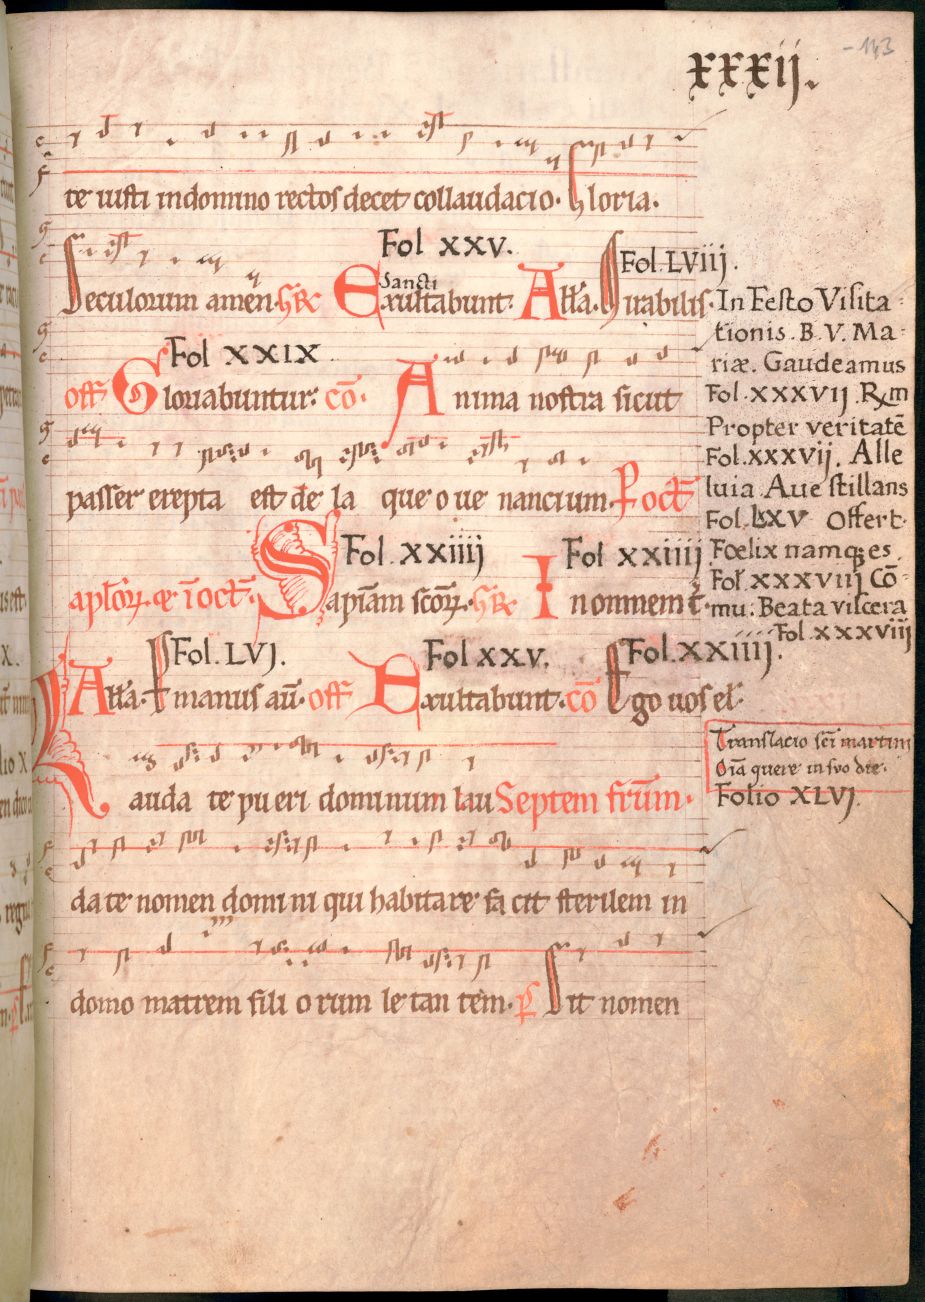 - 143
xxxij.
te iusti in domino rectos decet collaudacio. Gloria.
Fol xxv.
Fol. LViij.
Sancti
Seculorum amen. GR Exultabunt. All'a. Mirabilis.
Fol XXIX
off Gloriabuntur. cō. Anima nostra sicut
passer erepta est de la que o ue nancium. P oct
Fol. xxiiij
Fol xxiiij
aplōꝝ. ⁊ ī oct. Sapiām scōꝝ. GR In omnem t̄.
Fol. LVJ.
Fol xxv.
Fol. xxiiij.
All'a. Te manus aū. off Exultabunt. cō Ego uos el.
Lauda te pu eri dominum lau Septem frūm.
da te nomen domi ni qui habitare fa cit sterilem in
domo matrem fili o rum le tan tem. p̄s Sit nomen
In Festo Visita-
tionis. B. V. Ma-
riæ. Gaudeamus
Fol. xxxvij. Rm
Propter veritatē
Fol. xxxvij. Alle
luia. Aue stillans
Fol. lxv Offert.
Fœlix namq; es.
Fol. xxxviij Cō-
mu. Beata viscera
Fol xxxviij
Translacio sc̄i martini
Oīa quere in suo die.
Folio XLVJ.